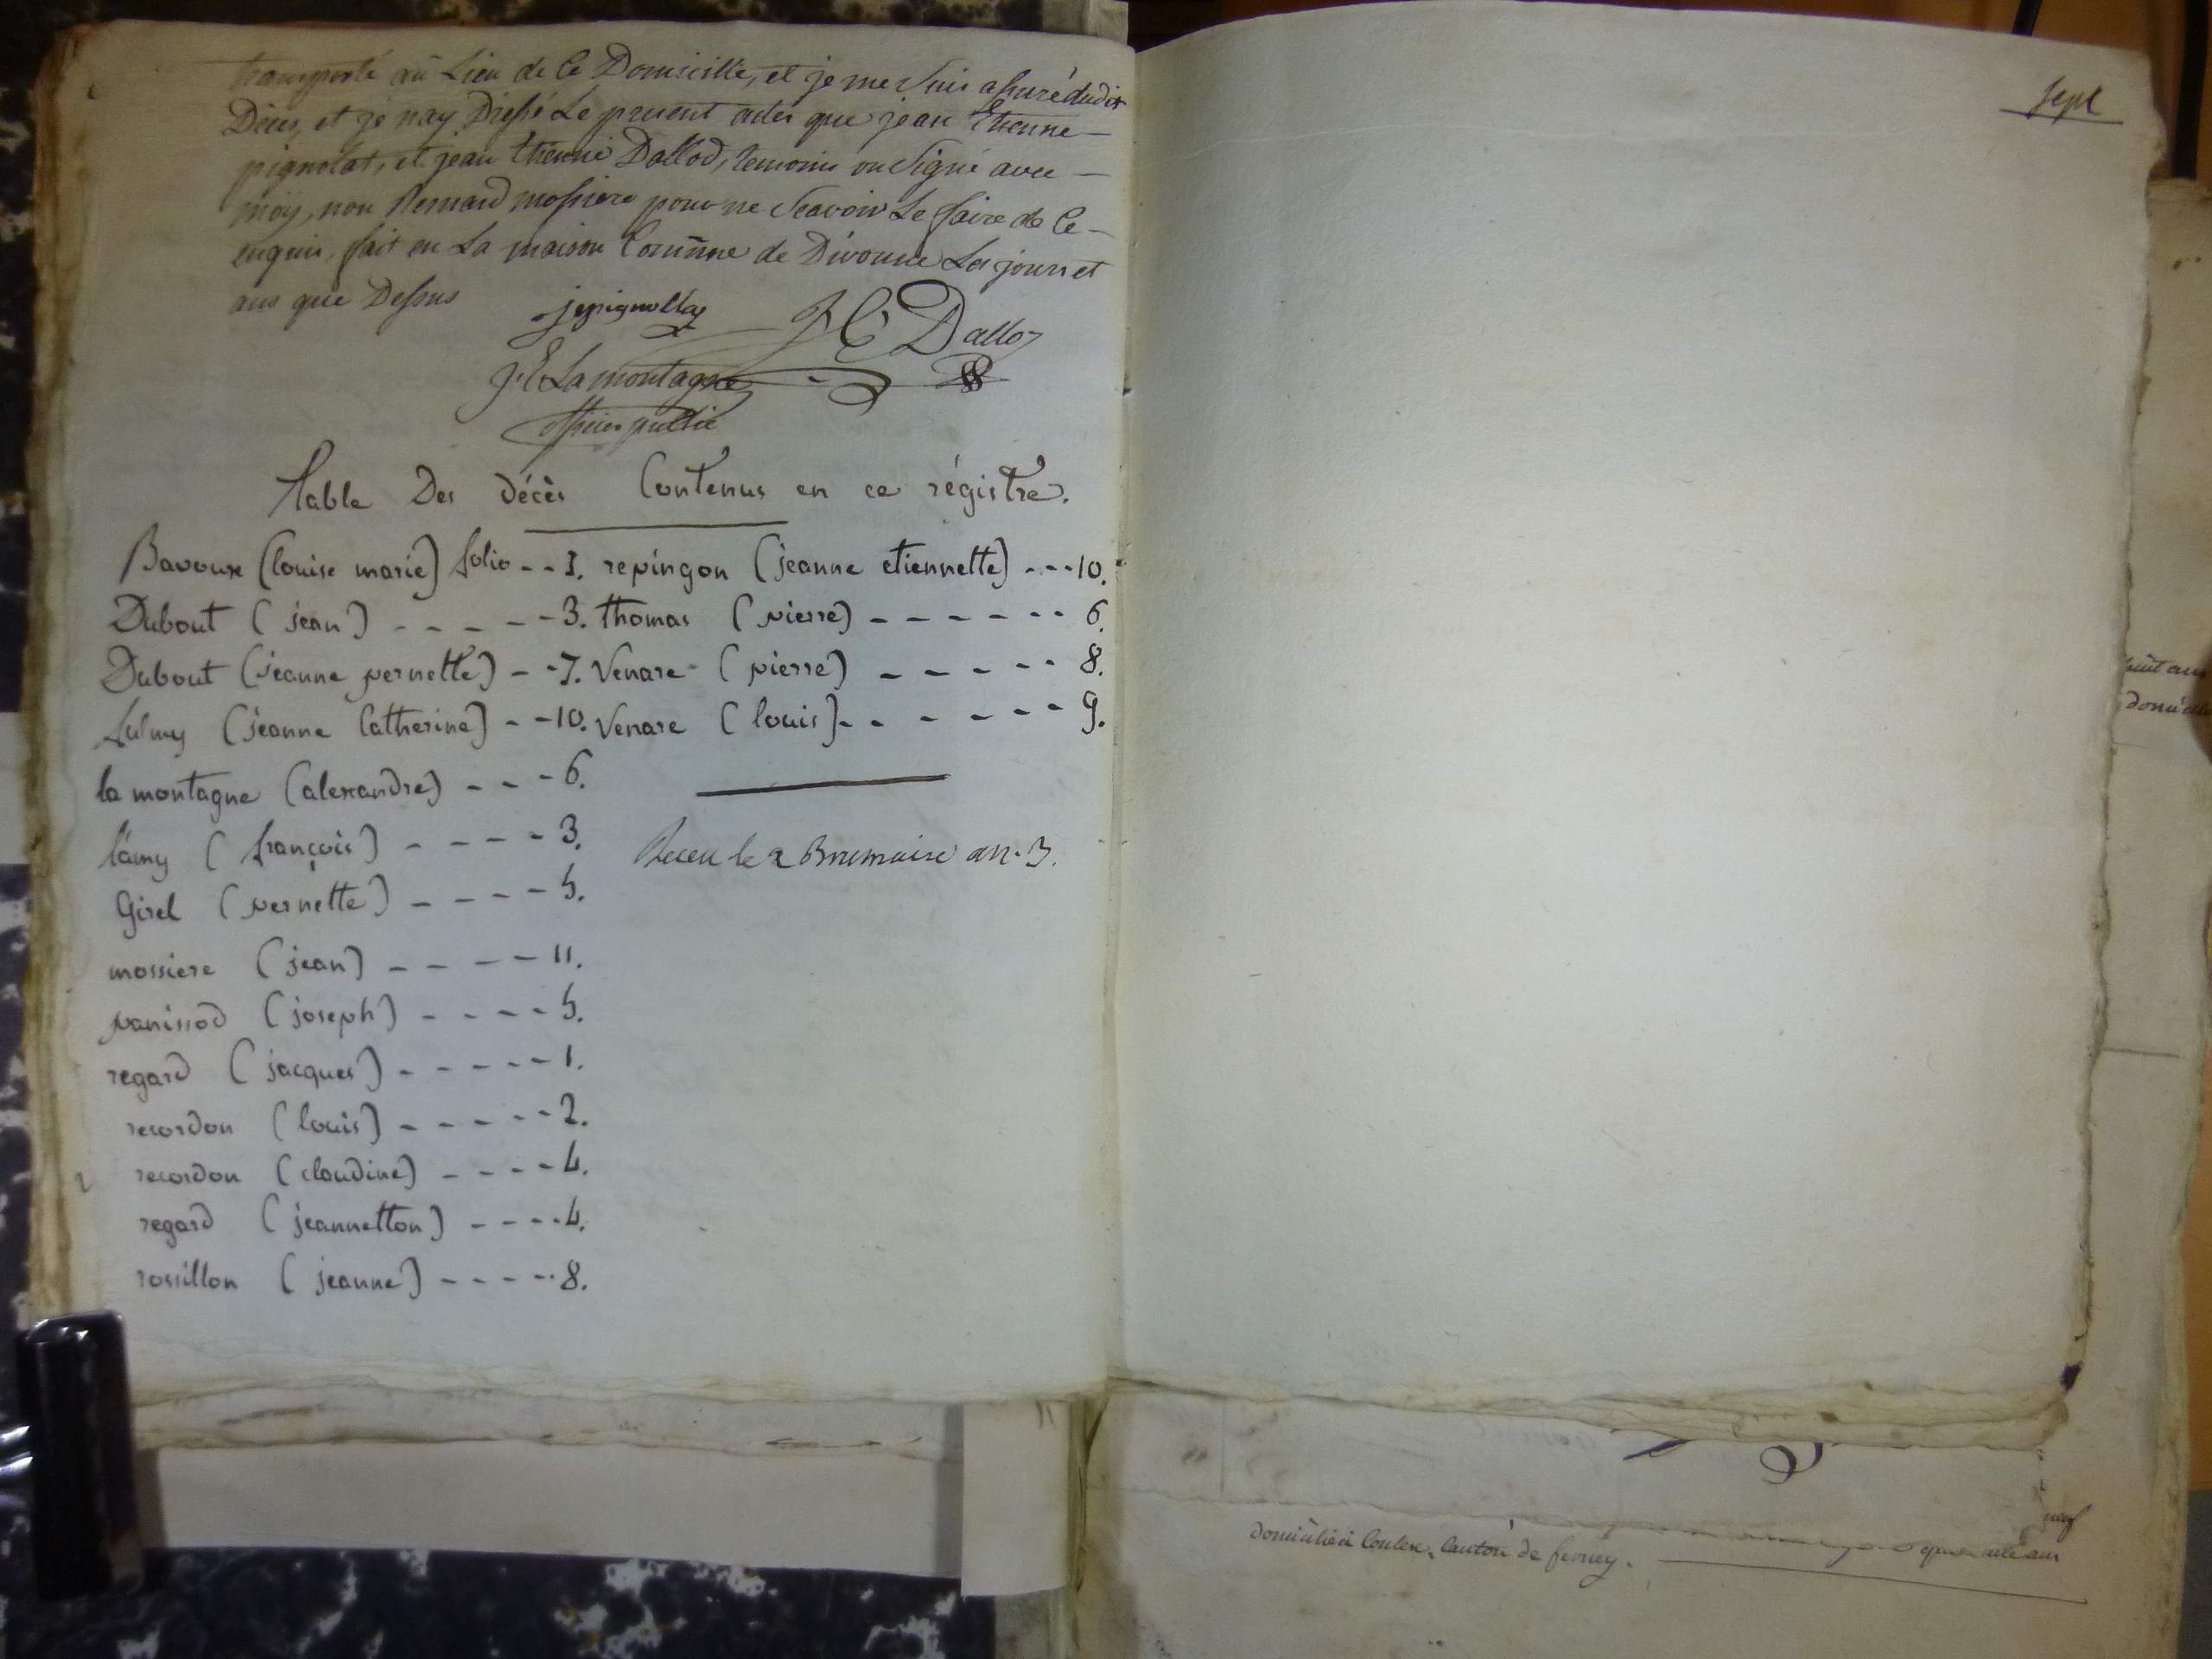 transporté aû Lieu de Ce Domicille, et je me Suis assuré dudit
Décès, et je n'ay Dressé Le present actes que jean Etienne
pignolat, et jean Etienne Dallod, temoins on Signé avec
moÿ, non Bernard mossiere pour ne Scavoir Le faire de Ce
enquis, fait en La maison Comune de Divonne Les jours et
ans que Dessus
jepignollat
J E Dalloz
J. E Lamontagne
officier public
table Des décès Contenus en ce régistre.
Bavoux (louise marie) folio -- 1. repingon (jeanne etiennette) --- 10.
Dubout (jean) - - - - - 3. thomas (pierre) - - - - - - - 6.
Dubout (jeanne pernette) - - 7. Venare (pierre) - - - - - - 8.
(jeanne Catherine) - - 10. Venare (louis) - - - - - - - 9.
la montagne (alexandre) - - - 6.
lamy (françois) - - - - 3.
Receu le 2 Brumaire an. 3.
Girel (pernette) - - - - 5.
mossiere (jean) - - - - 11.
panissod (joseph) - - - - 5.
regard (jacques) - - - - - 1.
recordon (louis) - - - - - 2.
recordon (claudine) - - - - 4.
regard (jeannetton) - - - - 4.
rossillon (jeanne) - - - - - 8.
sept
huit ans
domicilié à Coulex, Canton de ferney.